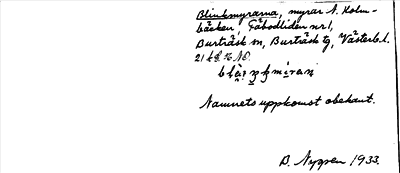 Blinkmyrarna, myrar N. Holm-
bäcken, Fäbodliden nr 1,
Burträsk sn, Burträsk tg, Västerb.l.
21 NO.
Namnets uppkomst obekant.
B. Nygren 1933.